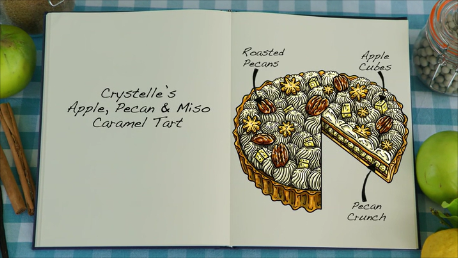 Crystelle's
Apple, Pecan & Miso
Caramel Tart
Roasted
Pecans
Apple
Cubes
Pecan
Crunch